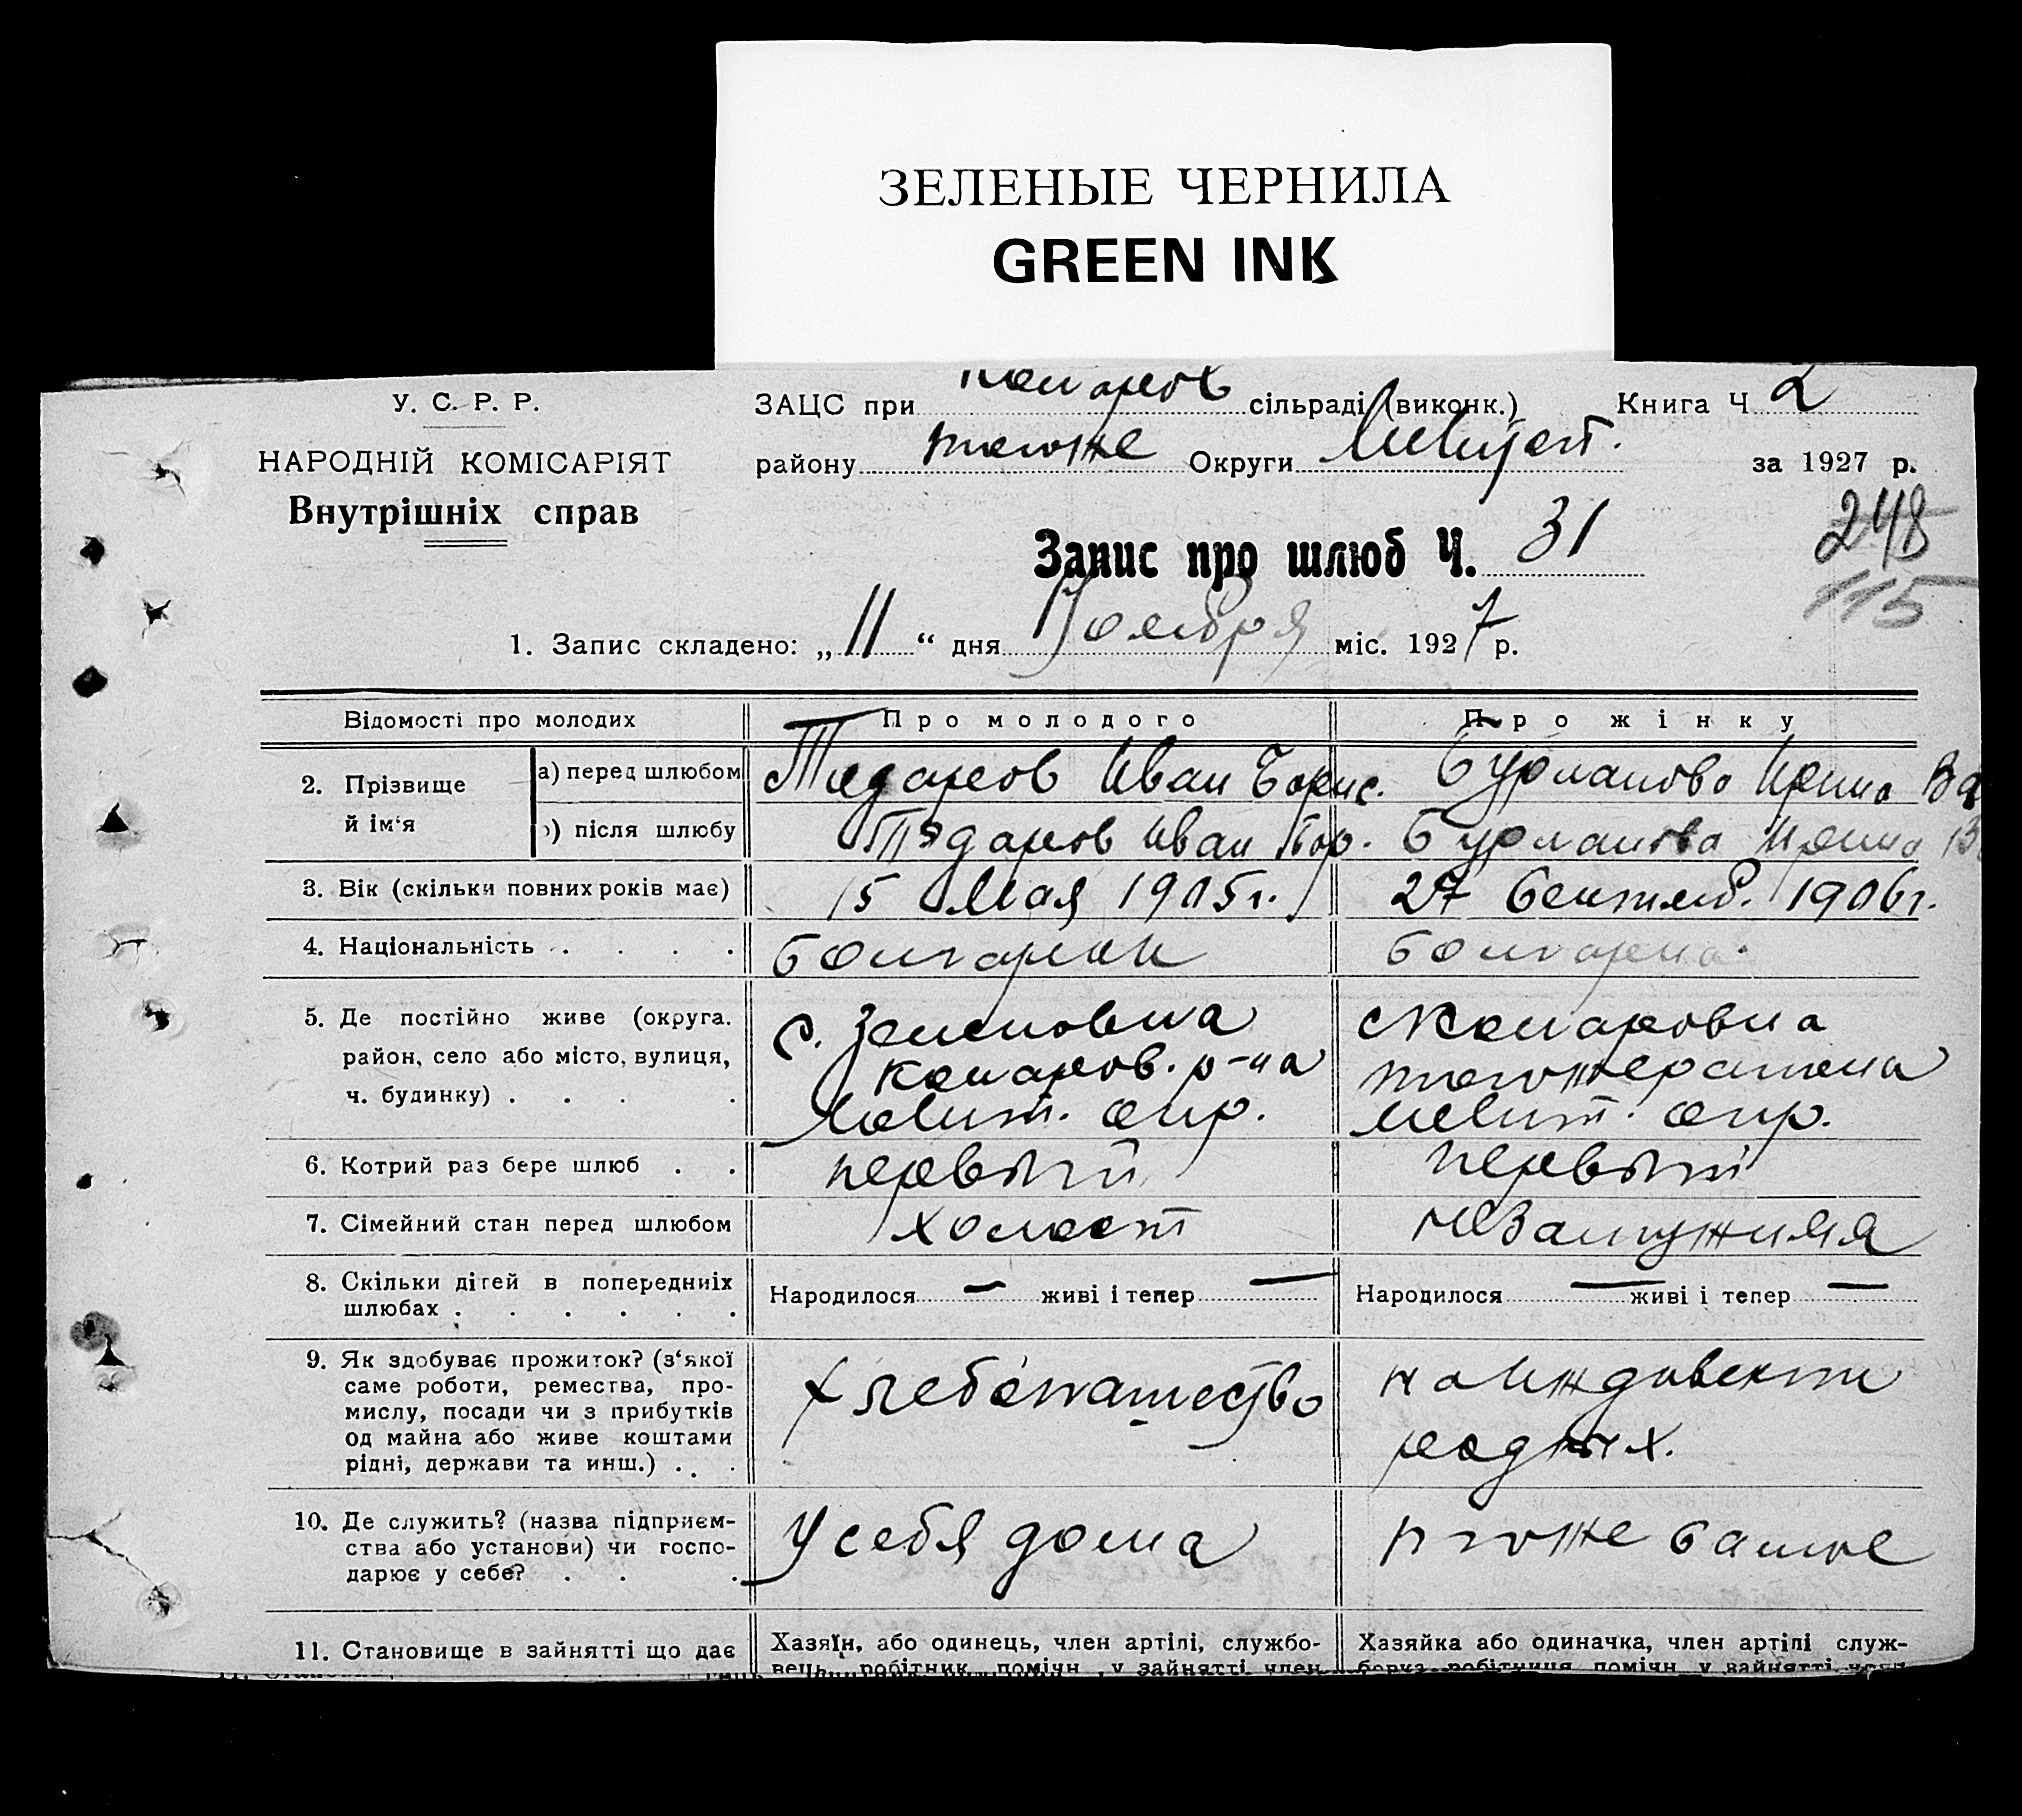 ЗЕЛЕНЫЕ ЧЕРНИЛА
GREEN INK
У. С. Р. Р.
НАРОДНІЙ КОМІСАРІЯТ
Внутрішніх справ
ЗАЦС при Комаров сільраді (виконк.) Книга Ч 2
району тогоже Округи Мелитоп. за 1927 р.
248
115
Запис про шлюб Ч. 31
1. Запис складено: „ 11 “ дня Ноября міс. 1927 р.
Відомості про молодих Про молодого Про жінку
2. Прізвище й ім‘я
а) перед шлюбом Иван Борис. Бурлакова Ирина Ва
б) після шлюбу Иван Бор. Бурлакова Ирина В
3. Вік (скільки повних років має) 15 Мая 1905 г. 27 Сентяб. 1906 г.
4. Національність . . . . болгарин болгарка.
5. Де постійно живе (округа. с. Зеленовка с Комаровка
район, село або місто, вулиця, Комаров. р-на тогоже района
ч. будинку) . . . . Мелит. окр. Мелит. окр.
6. Котрий раз бере шлюб . . первый первый
7. Сімейний стан перед шлюбом холост незамужняя
8. Скільки дітей в попередниіх Народилося — живі і тепер — Народилося — живі і тепер —
шлюбах . . . . . .
9. Як здобуває прожиток? (з‘якої хлебопашество на иждивении
саме роботи, ремества, про- родных.
мислу, посади чи з прибутків
од майна або живе коштами
рідні, держави та инш.) . . .
10. Де служить? (назва підприєм- У себя дома тоже
ства або установи) чи госпо-
дарює у себе? . . .
11. Становище в зайнятті що дає Хазяїн, або одинець, член артілі, службо- Хазяйка або одиначка, член артілі служ-
вець, робітник, помічн. у зайнятті член бовка, робітниця, помічн. у зайнятті член